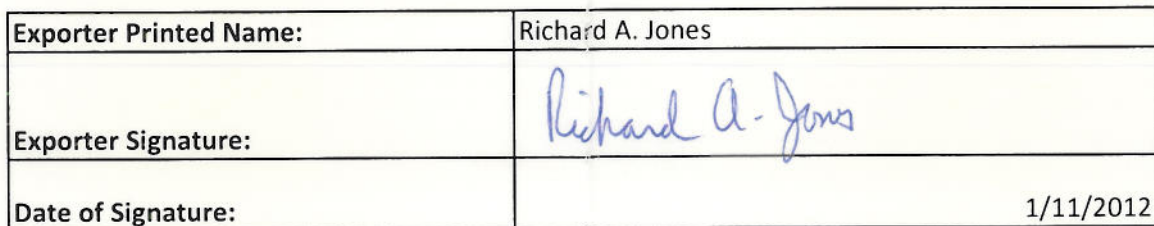 Exporter Printed Name: Richard A. Jones
Exporter Signature: Richard A. Jones
Date of Signature: 1/11/2012